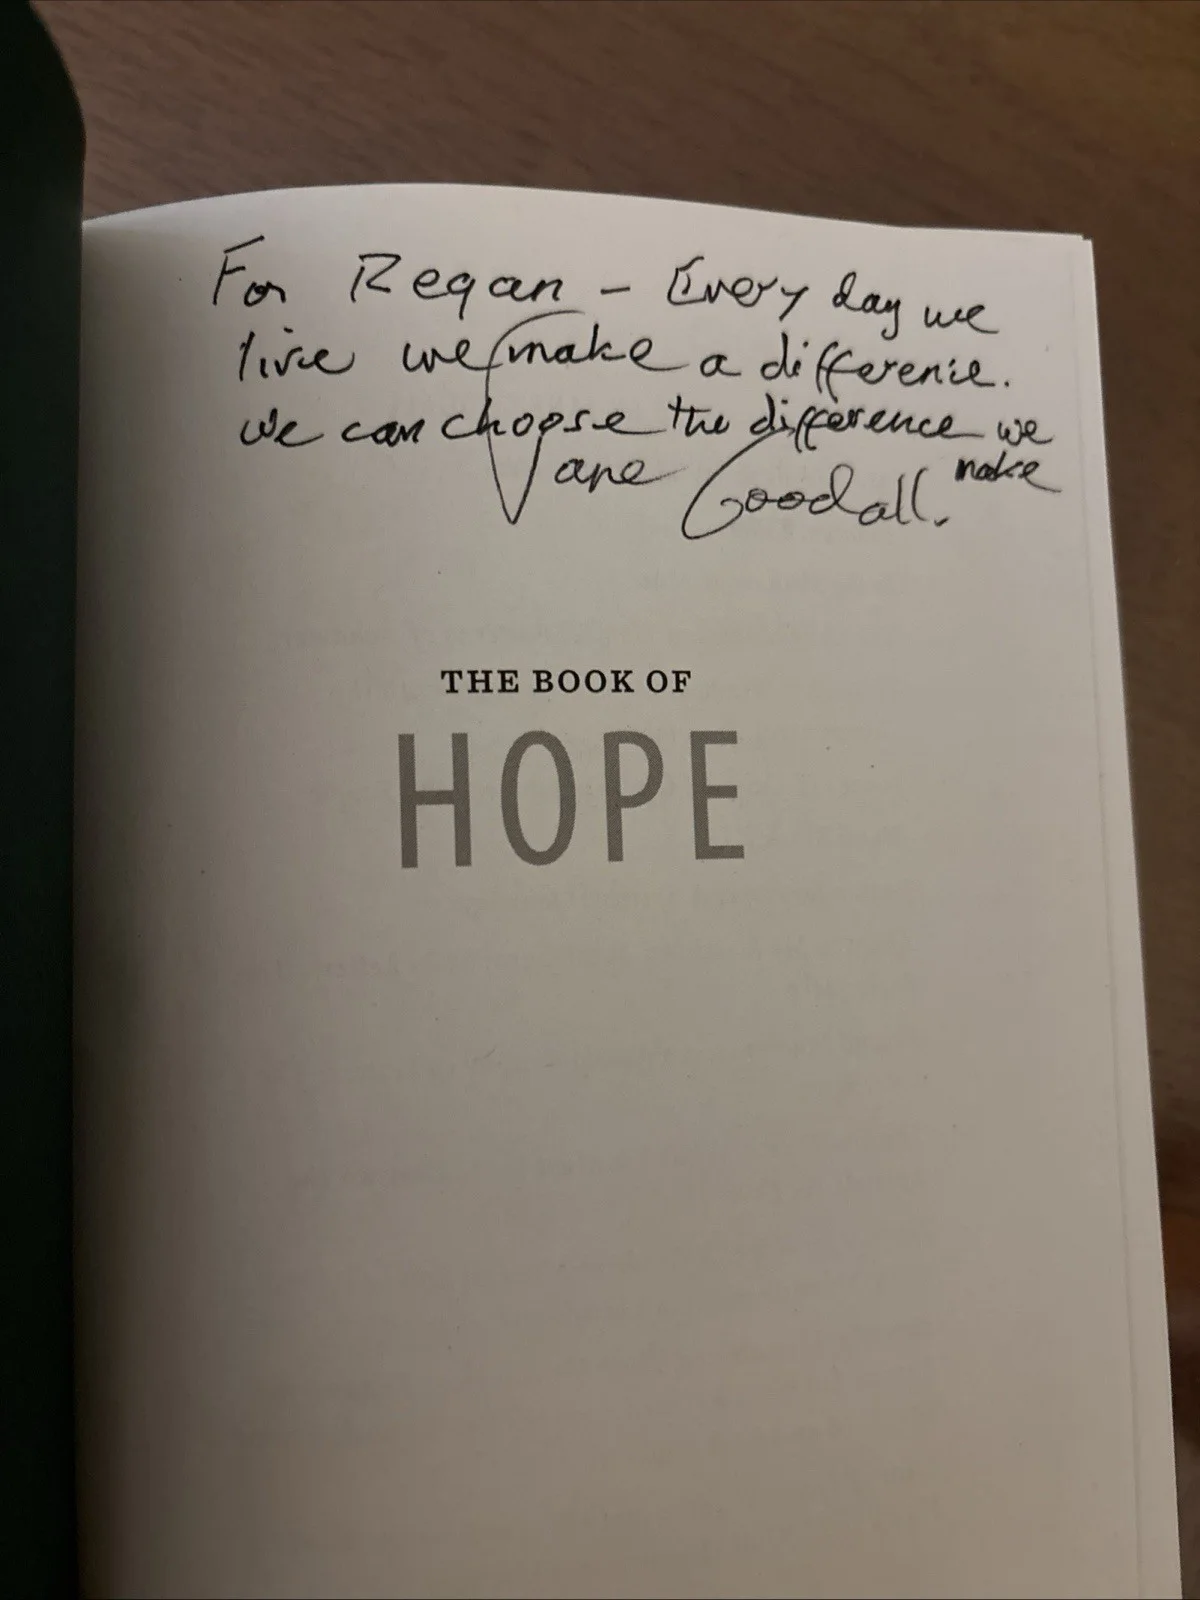 For Regan - Every day we
live we make a difference.
We can choose the difference we
make
Jane Goodall.
THE BOOK OF
HOPE